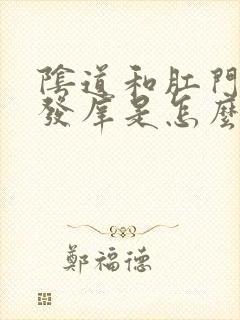 陰道和肛門
發庠是怎麼
鄭福德